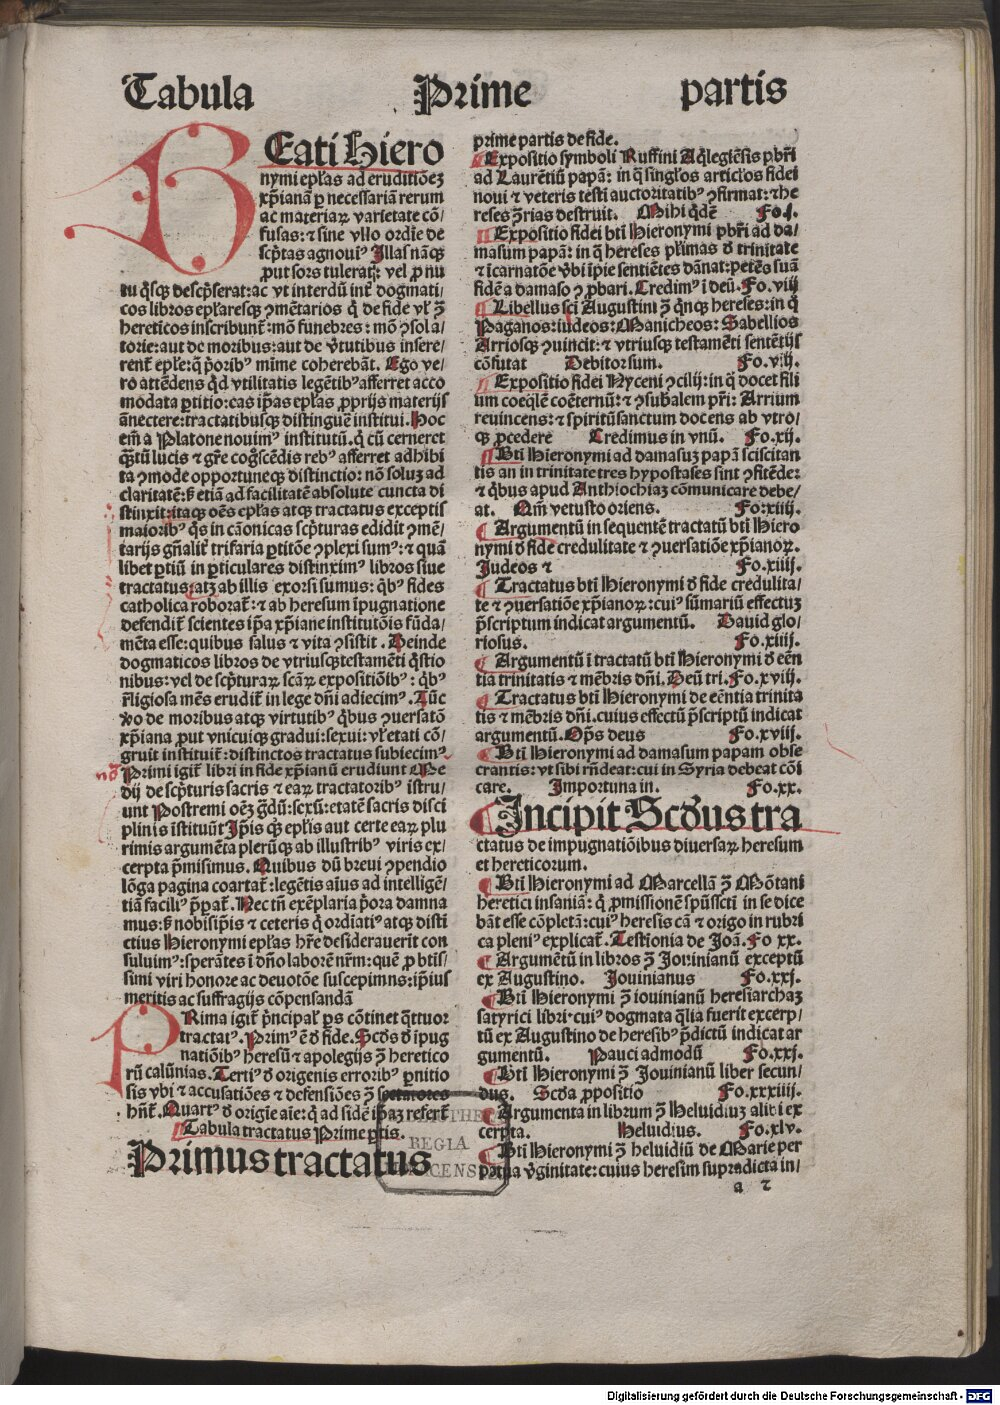 Tabula Prime partis
BEati Hiero
nymi epl̃as ad eruditiõeꝫ
xp̃ianã ꝑ necessariã rerum
ac materiaꝝ varietate cõ/
fusas: ⁊ sine vllo ordĩe de
scp̃tas agnouiꝰ Illas nãqꝫ
ꝓut sors tulerat: vel ꝓ nu
tu q̃sqꝫ descp̃serat: ac vt interdũ int̃ dogmati/
cos libros epl̃aresqꝫ ꝯmẽtarios q̃ de fide vl̃ ꝯ̃
hereticos inscribunt̃: mõ funebres: mõ ꝯsola/
torie: aut de moribus: aut de v̓tutibus insere/
rent̃ epl̃e: q̃ p̃oribꝰ mĩme coherebãt. Ego ve/
ro attẽdens q̃d vtilitatis legẽtibꝰ afferret acco
modata ꝑtitio: eas ip̃as epl̃as ꝓprijs materijs
ãnectere: tractatibusqꝫ distinguẽ institui. Hoc
em̃ a Platone nouimꝰ institutũ. q̃ cũ cerneret
q̃tũ lucis ⁊ gr̃e cog̃scẽdis rebꝰ afferret adhibi
ta ꝯmode opportuneqꝫ distinctio: nõ soluꝫ ad
claritatẽ: ß etiã ad facilitatẽ absolute cuncta di
stinxit: itaqꝫ oẽs epl̃as atqꝫ tractatus exceptis
maioribꝰ q̃s in cãonicas scp̃turas edidit ꝯmẽ/
tarijs gñalit̃ trifaria ꝑtitõe ꝯplexi sumꝰ: ⁊ quã
libet ꝑtiũ in ꝑticulares distinximꝰ libros siue
tractatus, atꝫ ab illis exorsi sumus: q̃bꝰ fides
catholica roborat̃: ⁊ ab heresum ĩpugnatione
defendit̃ scientes ip̃a xp̃iane institutõis fũda/
mẽta esse: quibus salus ⁊ vita ꝯsistit. Deinde
dogmaticos libros de vtriusqꝫ testamẽti q̃stio
nibus: vel de scp̃turaꝝ scãꝝ expositiõibꝰ: q̃bꝰ
r̃ligiosa mẽs erudit̃ in lege dñi adiecimꝰ. Tũc
v̓o de moribus atqꝫ virtutibꝰ q̃bus ꝯuersatõ
xp̃iana ꝓut vnicuiqꝫ gradui: sexui: vl̃ etati cõ/
gruit instituit̃: distinctos tractatus subiecimꝰ
Primi igit̃ libri in fide xp̃ianũ erudiunt Me
dij de scp̃turis sacris ⁊ eaꝝ tractatoribꝰ ĩstru/
unt Postremi oẽꝫ g̃dũ: sexũ: etatẽ sacris disci
plinis ĩstituũt Ip̃is q̃ꝫ epl̃is aut certe eaꝝ plu
rimis argumẽta plerũqꝫ ab illustribꝰ viris ex/
cerpta p̃misimus. Quibus dũ breui ꝯpendio
lõga pagina coartat̃: legẽtis aĩus ad intelligẽ/
tiã faciliꝰ p̃ꝑat̃. Nec tñ exẽplaria p̃ora damna
mus: ß nobisip̃is ⁊ ceteris q̃ ordiatiꝰ atqꝫ disti
ctius Hieronymi epl̃as hr̃e desiderauerit con
suluimꝰ: sperãtes ĩ dño laborẽ nr̃m: quẽ ꝓ btĩs/
simi viri honore ac deuotõe suscepimns: ip̃ius
meritis ac suffragijs cõpensandã
PRima igit̃ p̃ncipal̃ ps cõtinet q̃ttuor
tractatꝰ. Primꝰ ẽ d̓ fide. Scd̃s d̓ ĩpug
natiõibꝰ heresũ ⁊ apolegijs ꝯ̃ heretico
rũ calũnias. Tertiꝰ d̓ origenis erroribꝰ ꝑnitio
sis vbi ⁊ accusatiões ⁊ defensiões ꝯ̃ sectatores
hñt̃. Quartꝰ d̓ origĩe aĩe: q̃ ad fidẽ ip̃aꝫ refert̃
Tabula tractatus Prime ꝑtis.
Primus tractatus
prime partis de fide.
Expositio symboli Ruffini Aq̃legiẽsis pbr̃i
ad Laurẽtiũ papã: in q̃ singl̃os articl̃os fidei
noui ⁊ veteris testi auctoritatibꝰ ꝯfirmat: ⁊ he
reses ꝯ̃rias destruit. Mihi q̃dẽ Fo.j.
Expositio fidei btĩ Hieronymi pbr̃i ad da/
masum papã: in q̃ hereses pl̃imas d̓ trinitate
⁊ ĩcarnatõe v̓bi ĩpie sentiẽtes dãnat: petẽs suã
fidẽ a damaso ꝯ̃ ꝓbari. Credimꝰ ĩ deũ. Fo.viij
Libellus sc̃i Augustini ꝯ̃ q̃nqꝫ hereses: in q̃
Paganos: iudeos: Manicheos: Sabellios
Arriosqꝫ ꝯuincit: ⁊ vtriusqꝫ testamẽti sentẽtijs
cõfutat Debitorsum. Fo.viij.
Expositio fidei Nyceni ꝯcilij: in q̃ docet fili
um coeq̃lẽ coẽternũ: ⁊ ꝯsubalem pr̃i: Arrium
reuincens: ⁊ spiritũsanctum docens ab vtro/
qꝫ ꝓcedere Credimus in vnũ. Fo.xij.
Btĩ Hieronymi ad damasuꝫ papã sciscitan
tis an in trinitate tres hypostases sint ꝯfitẽde:
⁊ q̃bus apud Anthiochiaꝫ cõmunicare debe/
at. Qm̃ vetusto oriens. Fo:xiiij.
Argumentũ in sequentẽ tractatũ btĩ Hiero
nymi d̓ fide credulitate ⁊ ꝯuersatiõe xp̃ianoꝝ.
Judeos ⁊ Fo.xiiij.
Tractatus btĩ Hieronymi d̓ fide credulita/
te ⁊ ꝯuersatiõe xp̃ianoꝝ: cuiꝰ sũmariũ effectuꝫ
p̃scriptum indicat argumentũ. Dauid glo/
riosus. Fo.xiiij.
Argumentũ ĩ tractatũ btĩ Hieronymi d̓ eẽn
tia trinitatis ⁊ mẽbris dñi. Deũ tri. Fo.xviij.
Tractatus btĩ Hieronymi de eẽntia trinita
tis ⁊ mẽbris dñi. cuius effectũ p̃scriptũ indicat
argumentũ. Op̃s deus Fo.xviij.
Btĩ Hieronymi ad damasum papam obse
crantis: vt sibi rñdeat: cui in Syria debeat cõi
care. Importuna in. Fo.xx.
Incipit Scd̓us tra
ctatus de impugnatiõibus diuersaꝝ heresum
et hereticorum.
Btĩ Hieronymi ad Marcellã ꝯ̃ Mõtani
heretici insaniã: q̃ ꝓmissionẽ spũssctĩ in se dice
bãt esse cõpletã: cuiꝰ heresis cã ⁊ origo in rubri
ca pleniꝰ explicat̃. Testionia de Joã. Fo xx.
Argumẽtũ in libros ꝯ̃ Jouinianũ exceptũ
ex Augustino. Jouinianus Fo.xxj.
Btĩ Hieronymi ꝯ̃ iouinianũ heresiarchaꝫ
satyrici libri. cuiꝰ dogmata q̃lia fuerit excerp/
tũ ex Augustino de heresibꝰ p̃dictũ indicat ar
gumentũ. Pauci admodũ Fo.xxj.
Btĩ Hieronymi ꝯ̃ Jouinianũ liber secun/
dus. Scd̓a ꝓpositio Fo.xxxiiij.
Argumenta in librum ꝯ̃ Heluidiuꝫ alibi ex
cerpta. Heluidius. Fo.xlv.
Btĩ Hieronymi ꝯ̃ heluidiũ de Marie per
petua v̓ginitate: cuius heresim supradicta in/
a 2
BIBLIOTHECA
REGIA
MONACENSIS
Digitalisierung gefördert durch die Deutsche Forschungsgemeinschaft - DFG